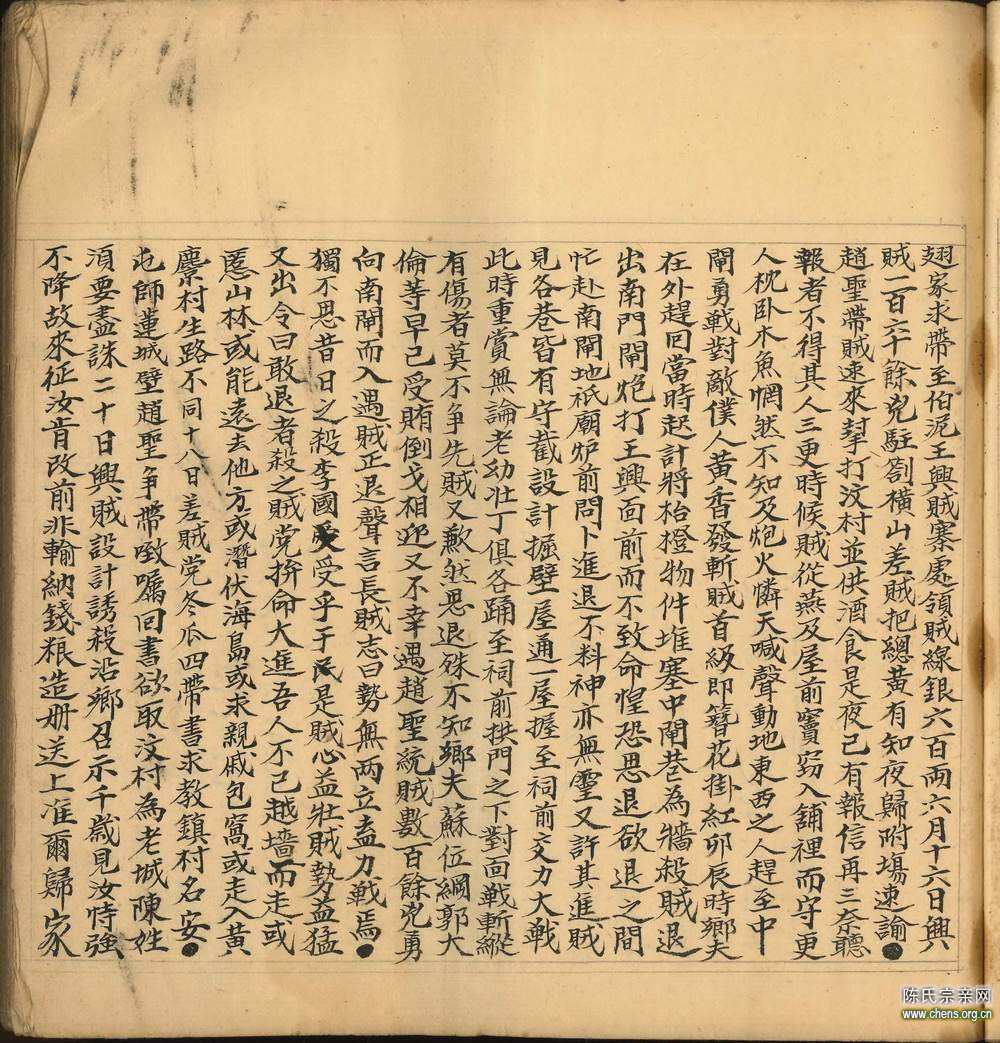 翅家求帶至伯泥王興賊寨處領賊線銀六百兩六月十六日興
賊一百六十餘兇駐劄橫山差賊把總黃有知夜歸附場速諭●
趙聖帶賊速來揧打汶村並供酒食是夜已有報信再三奈聽
報者不得其人三更時候賊從燕及屋前竇窈入舖裡而守更
人枕卧木魚惘然不知及炮火憐天喊聲動地東西之人趕至中
閘勇戰對敵僕人黃香發斬賊首級即簪花掛紅卯辰時鄉夫
在外趕回當時起計將枱橙物件堆塞中閘巷為牆殺賊退
出南門閘炮打王興面前而不致命惶恐思退欲退之間
忙赴南閘地祇廟炉前問卜進退不料神亦無靈又許其進賊
見各巷皆有守截設計掘壁屋通一屋握至祠前交力大戰
此時重賞無論老幼壮丁俱各踊至祠前拱門之下對面戰斬縱
有傷者莫不争先賊又歉然思退殊不知鄉夫蘇位綱郭大
倫等早已受賄倒戈相迎又不幸遇趙聖統賊數百餘兇勇
向南閘而入遇賊正退聲言長賊志曰勢無两立盍力戰焉●
獨不思昔日之殺李國受乎于民是賊心益壯賊勢益猛
又出令曰敢退者殺之賊党拚命大進吾人不已越墙而走或
慝山林或能遠去他方或潛伏海島或求親戚包窩或走入黃
麖村生路不同十八日差賊党冬瓜四帶書求教鎮村名安●
屯師蓮城壁趙聖爭帶暾嘱回書欲取汶村為老城陳姓
湏要盡誅二十日興賊設計誘殺沿鄉召示千歲見汝恃強
不降故來征汝肯改前非輸納錢粮造册送上准爾歸家
陈氏宗亲网
www.chens.org.cn